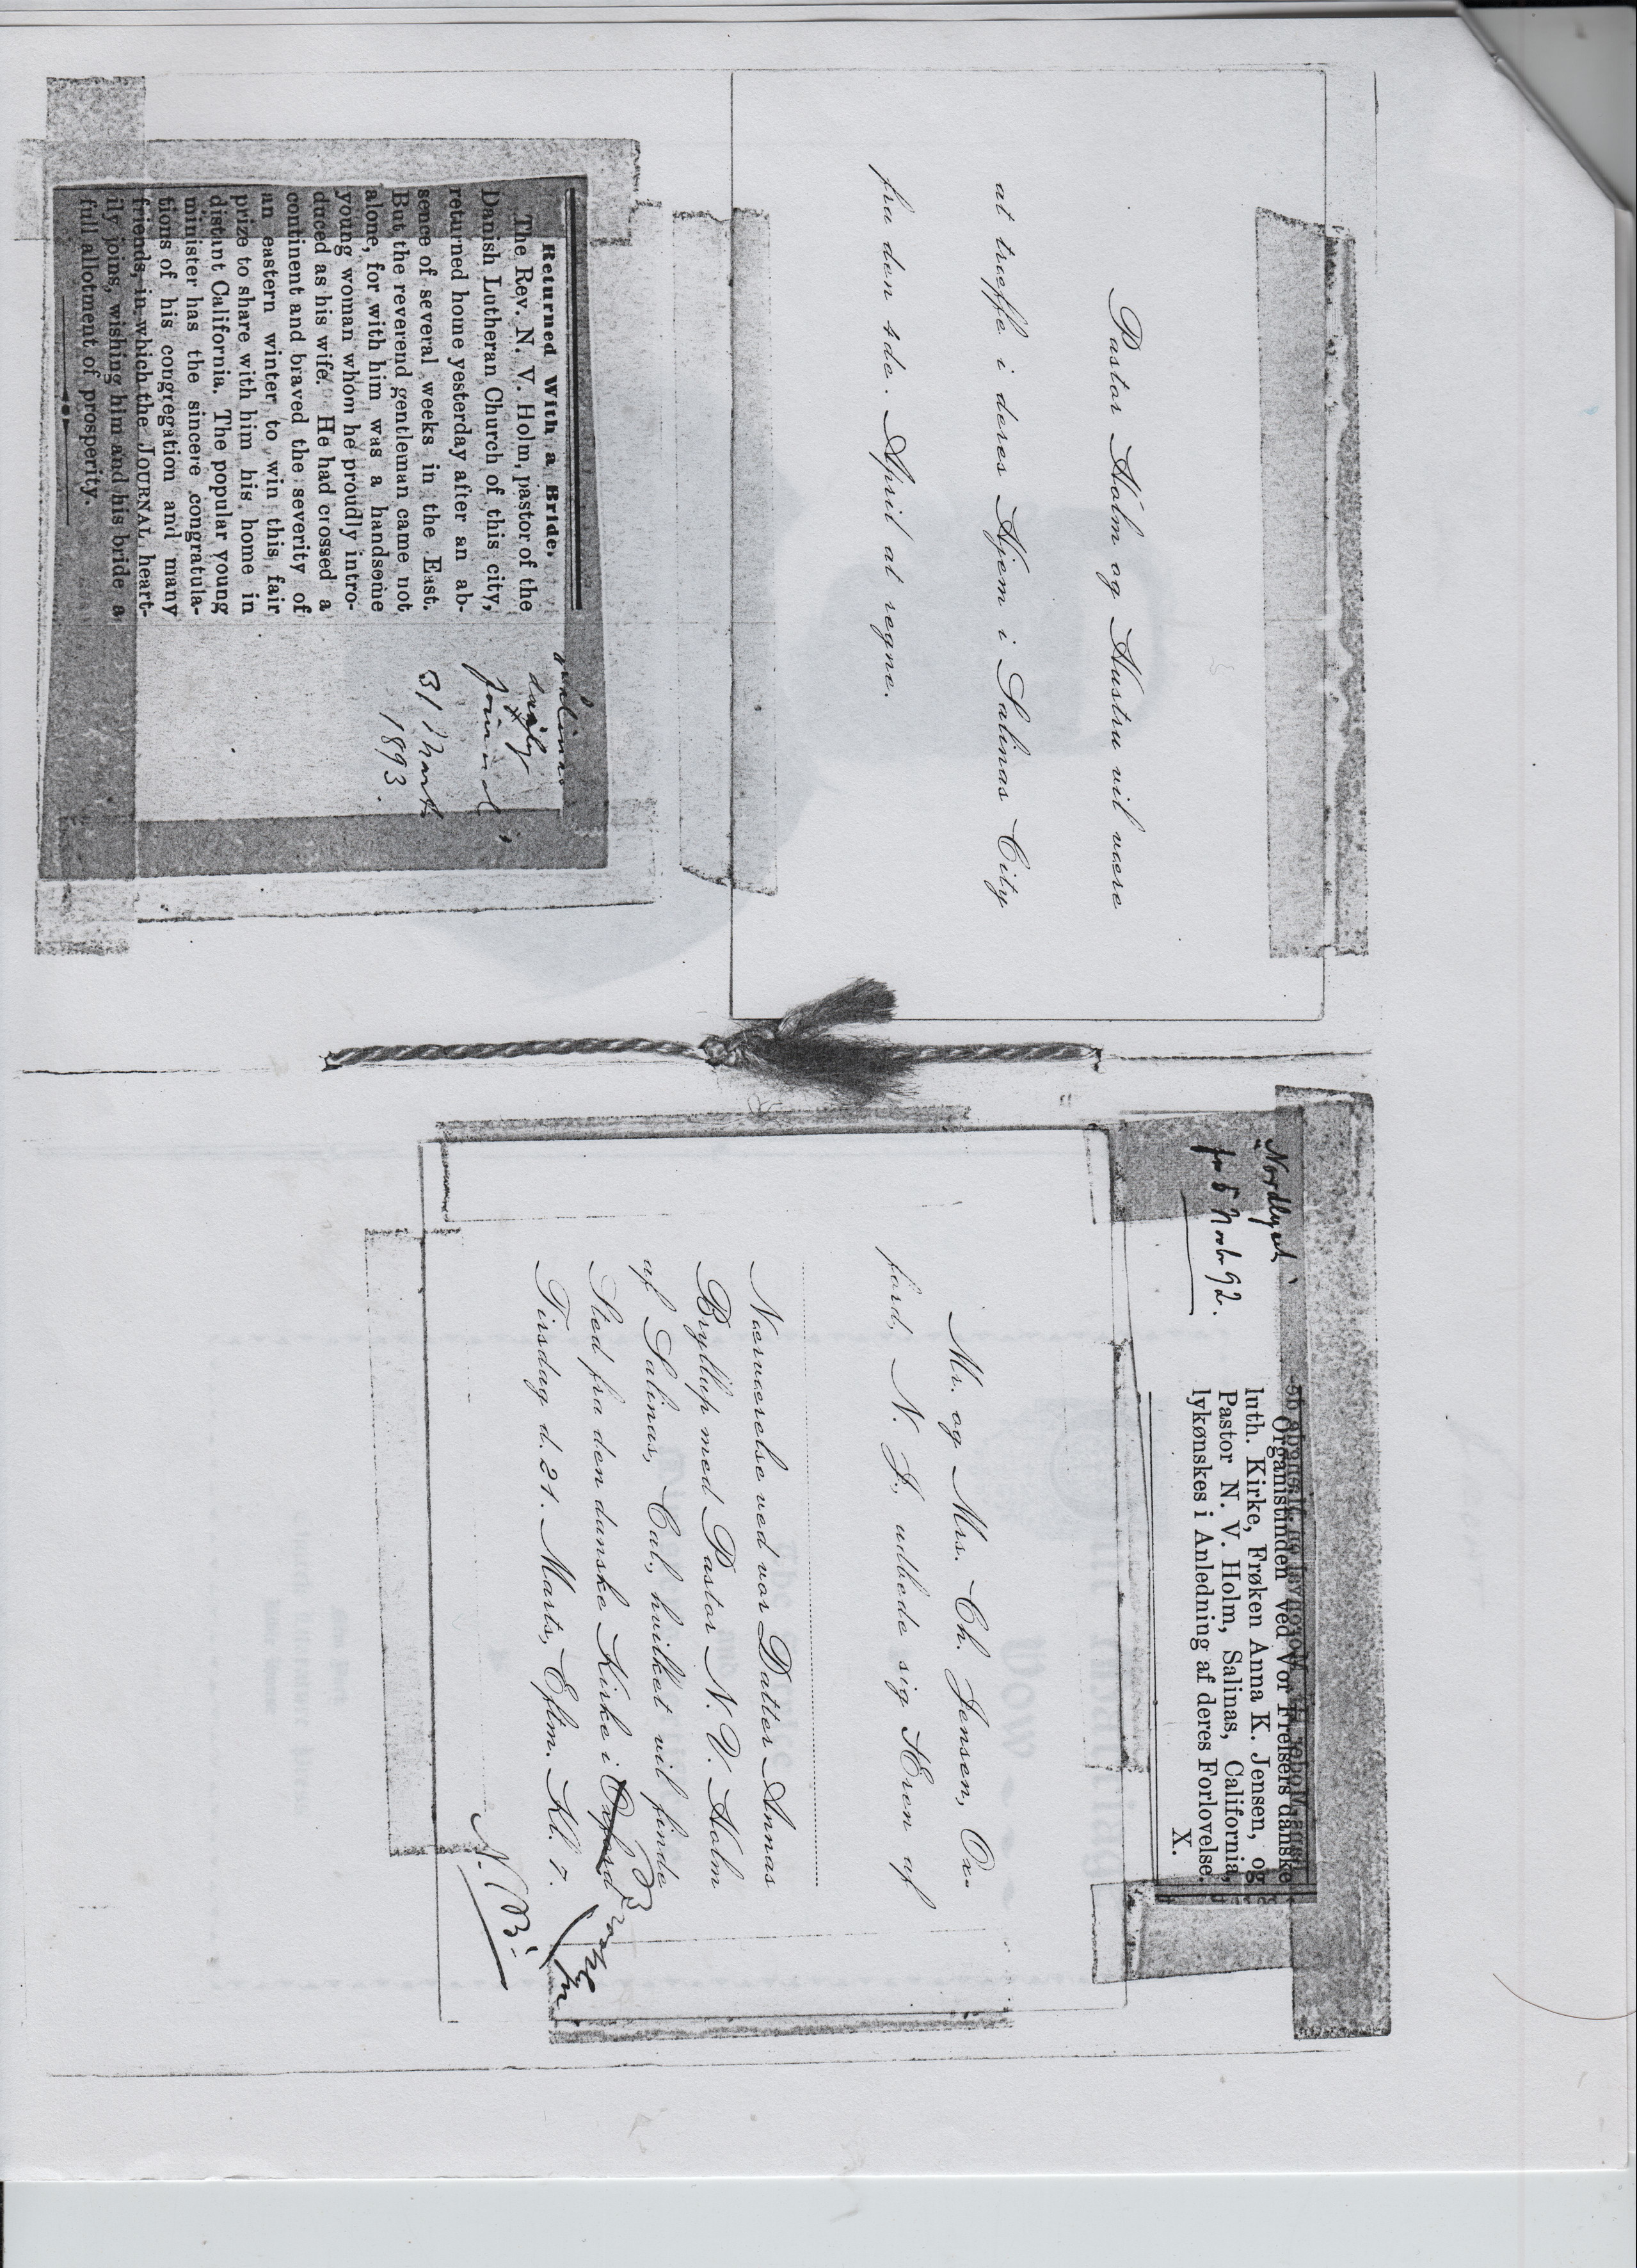 Pastor Holm og Hustru vil være
at træffe i deres Hjem i Salinas City
fra den 4de. April at regne.
Returned With a Bride.
The Rev. N. V. Holm, pastor of the
Danish Lutheran Church of this city,
returned home yesterday after an ab-
sence of several weeks in the East.
But the reverend gentleman came not
alone, for with him was a handsome
young woman whom he proudly intro-
duced as his wife. He had crossed a
continent and braved the severity of
an eastern winter to win this fair
prize to share with him his home in
distant California. The popular young
minister has the sincere congratula-
tions of his congregation and many
friends, in which the JOURNAL heart-
ily joins, wishing him and his bride a
full allotment of prosperity.
Salinas
daily
Journal
31 Mart
1893.
"Nordlyset"
for 5 Novbr 92.
Organistinden ved Vor Frelsers danske
luth. Kirke, Frøken Anna K. Jensen, og
Pastor N. V. Holm, Salinas, California,
lykønskes i Anledning af deres Forlovelse.
X.
Mr. og Mrs. Ch. Jensen, Ox-
ford, N. J., udbede sig Æren af
Nærværelse ved vor Datter Annas
Bryllup med Pastor N. V. Holm
af Salinas, Cal., hvilket vil finde
Sted fra den danske Kirke i Oxford Brooklyn
Tirsdag d. 21. Marts, Eftm. Kl. 7.
N. B.